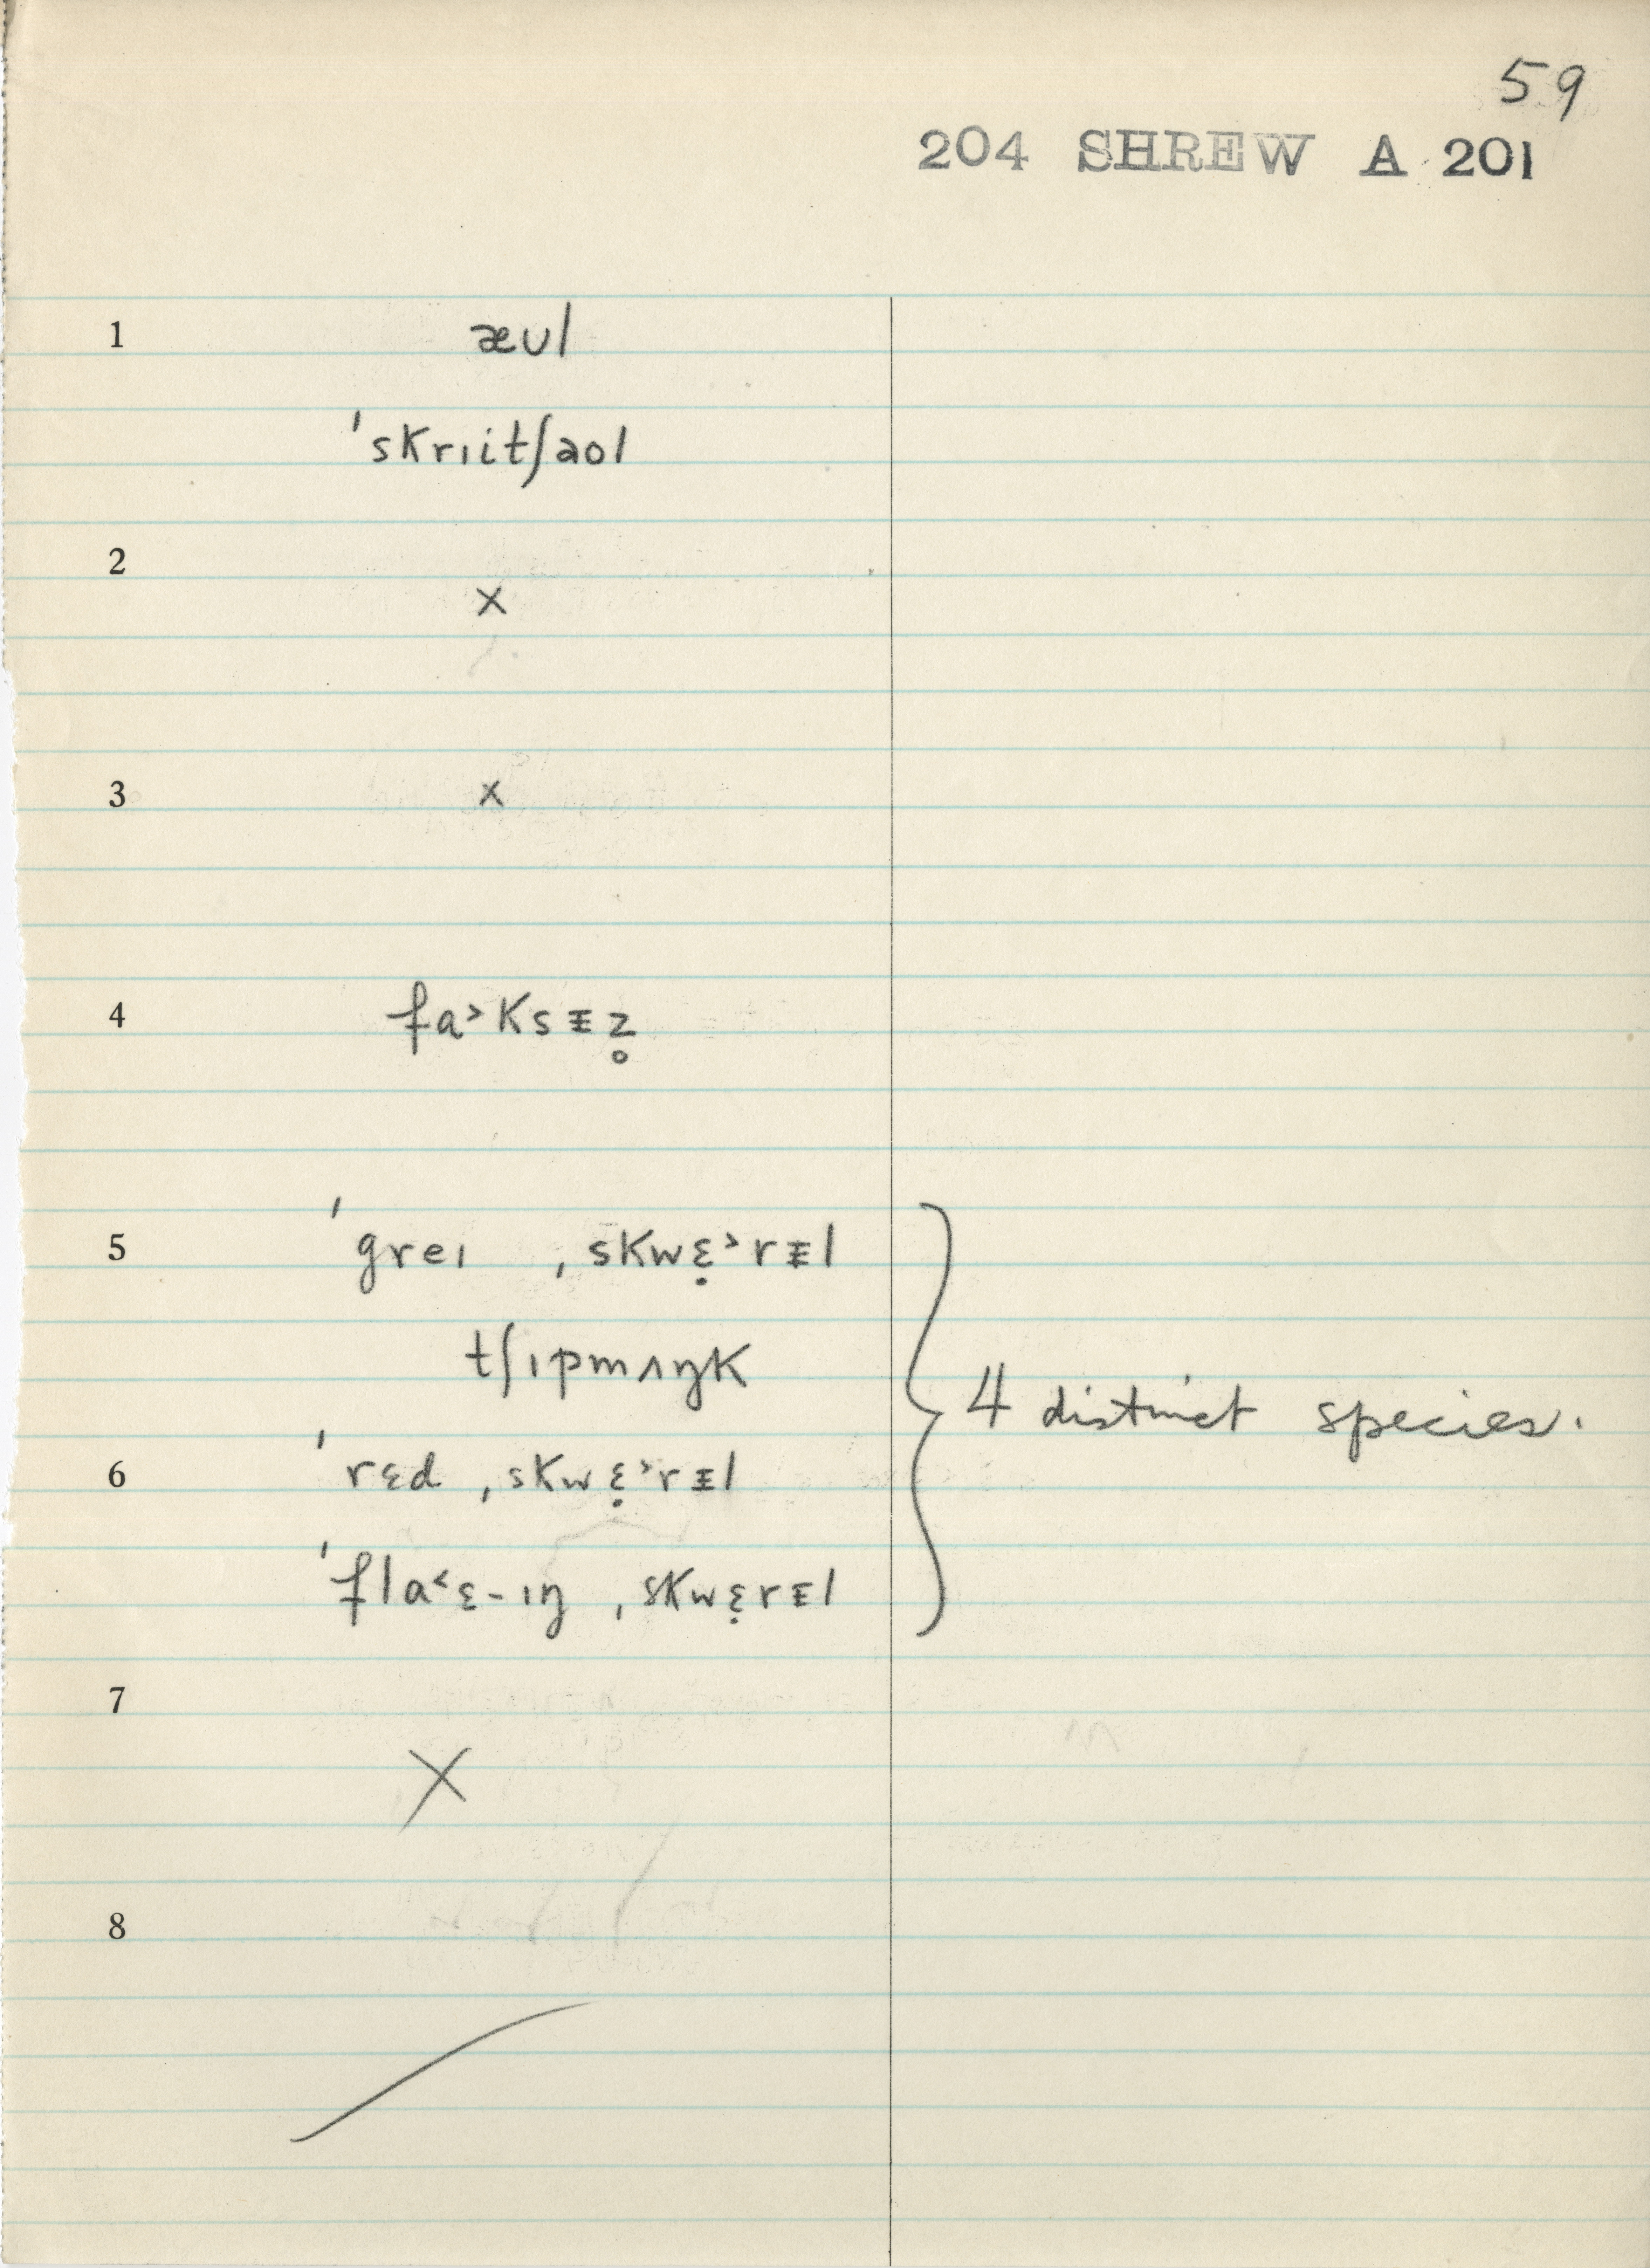 59
204 SHREW A 201
1 æʊl
ˈskrɪitʃaol
2
×
3 ×
4 fa˃ksᵻz̥
5 ˈgreɪ ˌskwɛ̣˃rᵻl
tʃɪpmʌŋk
4 distinct species.
6 ˈrɛd ˌskwɛ̣˃rᵻl
ˈfla˂ɛ-ɪŋ ˌskwɛ̣rᵻl
7
×
8